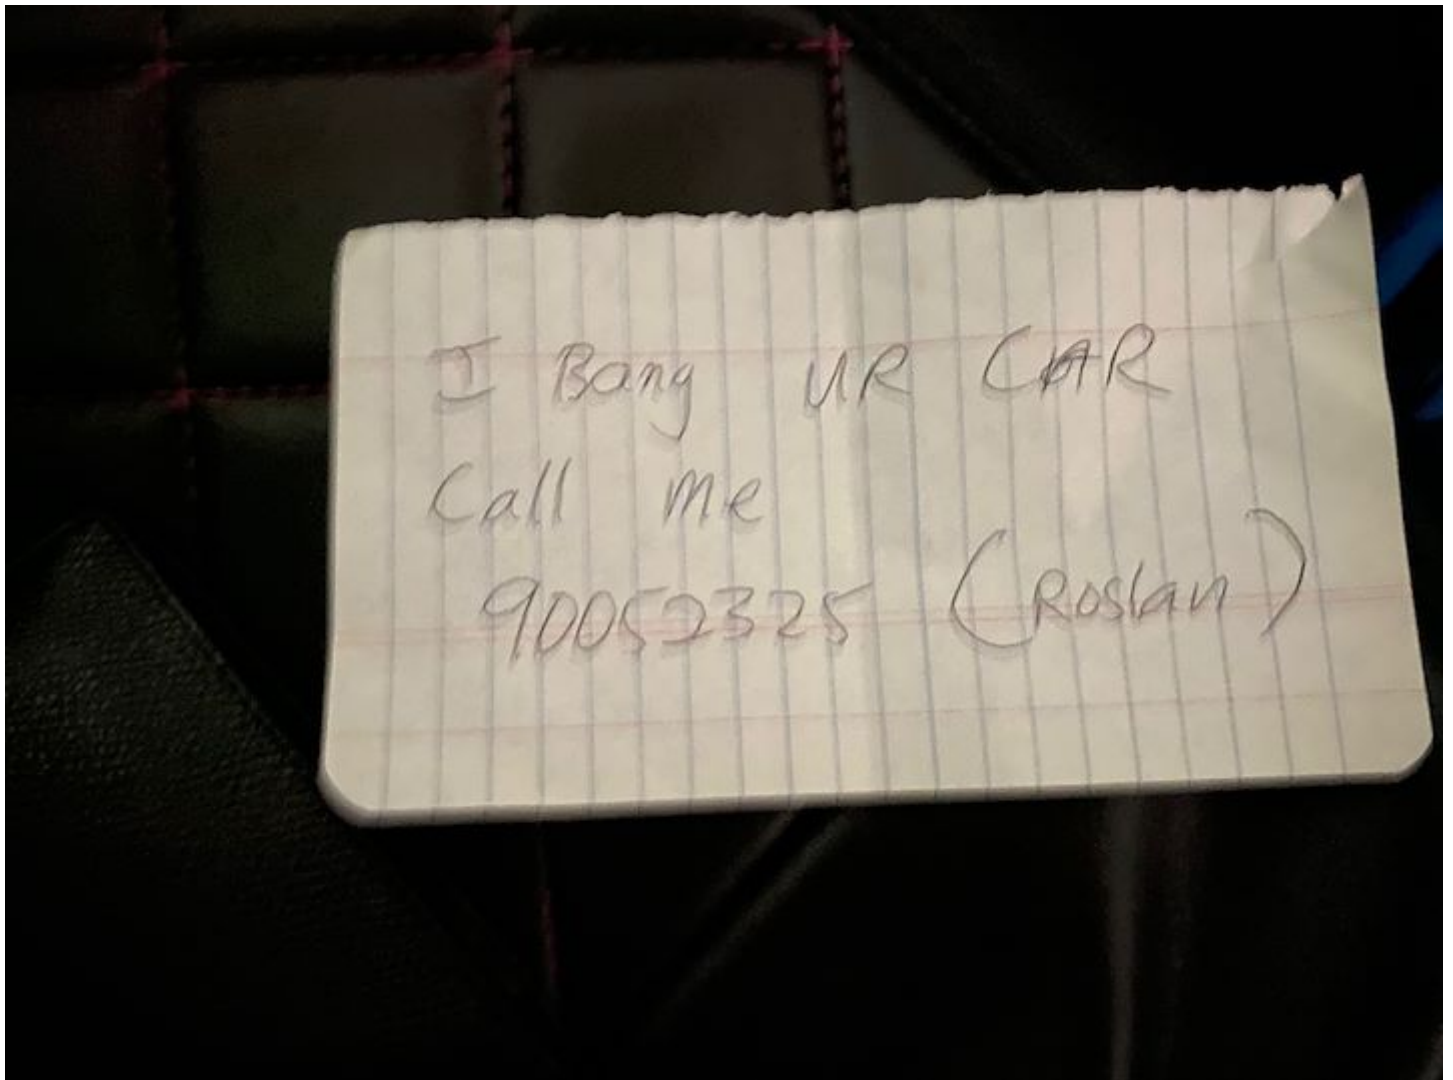 I Bang UR CAR
Call Me
90052325 (Roslan)